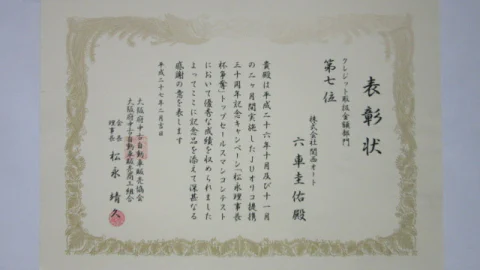 表彰状
クレジット取扱金額部門
第七位
株式会社 関西オート
六車圭佑殿
貴殿は平成二十六年十月及び十一月
の二ヶ月間実施したJUオリコ提携
三十周年記念キャンペーン「松永理事長
杯争奪」トップセールスマンコンテスト
において優秀な成績を収められました
よってここに記念品を添えて深甚なる
感謝の意を表します
平成二十七年二月吉日
大阪府中古自動車販売協会
大阪府中古自動車販売商工組合
会長
理事長
松永 晴久